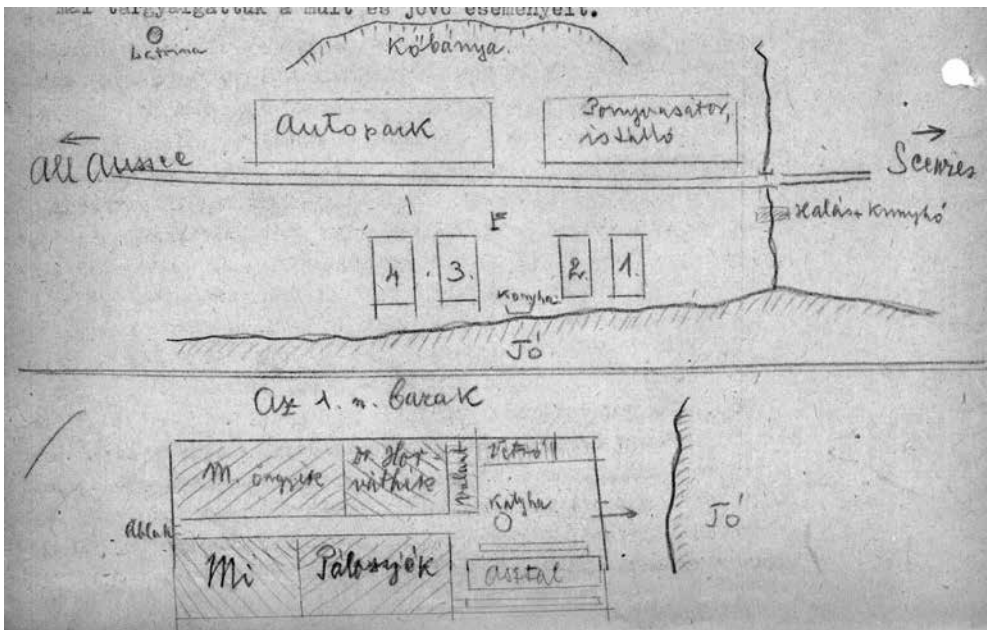 már tárgyalgattuk a mult és jövő eseményeit.
Latrina
Kőbánya.
Autopark
Ponyvasátor,
istálló
All Aussee
Halász Kunyhó
4
3.
2.
1.
Konyha
Tó
Az 1. n. barak
Dr. Hor-
váthék
Kályha
Tó
Ablak
Mi
Pálosyék
asztal